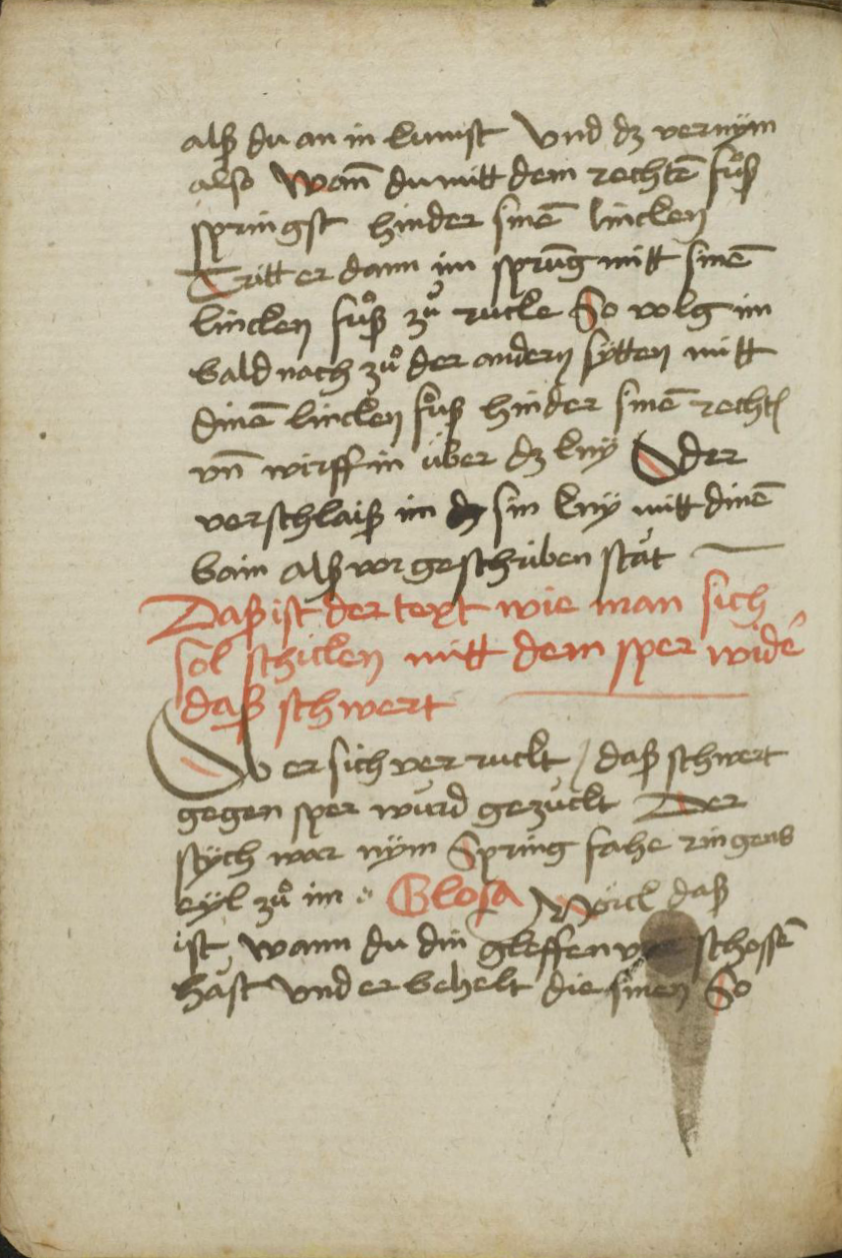 alß du an in kumst Vnd dz vernÿm
also Wañ du mitt dem rechtē fůß
springst hinder sinē lincken
Tritt er dann im sprūg mitt sinē
lincken fůß zů rucke So volg im
bald nach zů der andern sÿtten mitt
dinē lincken fůß hinder sinē rechtē
vñ wirff in über dz knÿ Oder
verschlaiß im dz sin knÿ mitt dinē
bain alß vor geschriben stät
Daß ist der text wie man sich
sol schicken mitt dem sper wide͛
daß schwert
Wer sich ver ruckt / daß schwert
gegen sper würd gezückt Der
stÿch war nÿm Spring fahe ringens
eÿl zů im Glosa Mörck daß
ist wann du din gleffen ver schossē
häst Vnd er behelt die sinen So